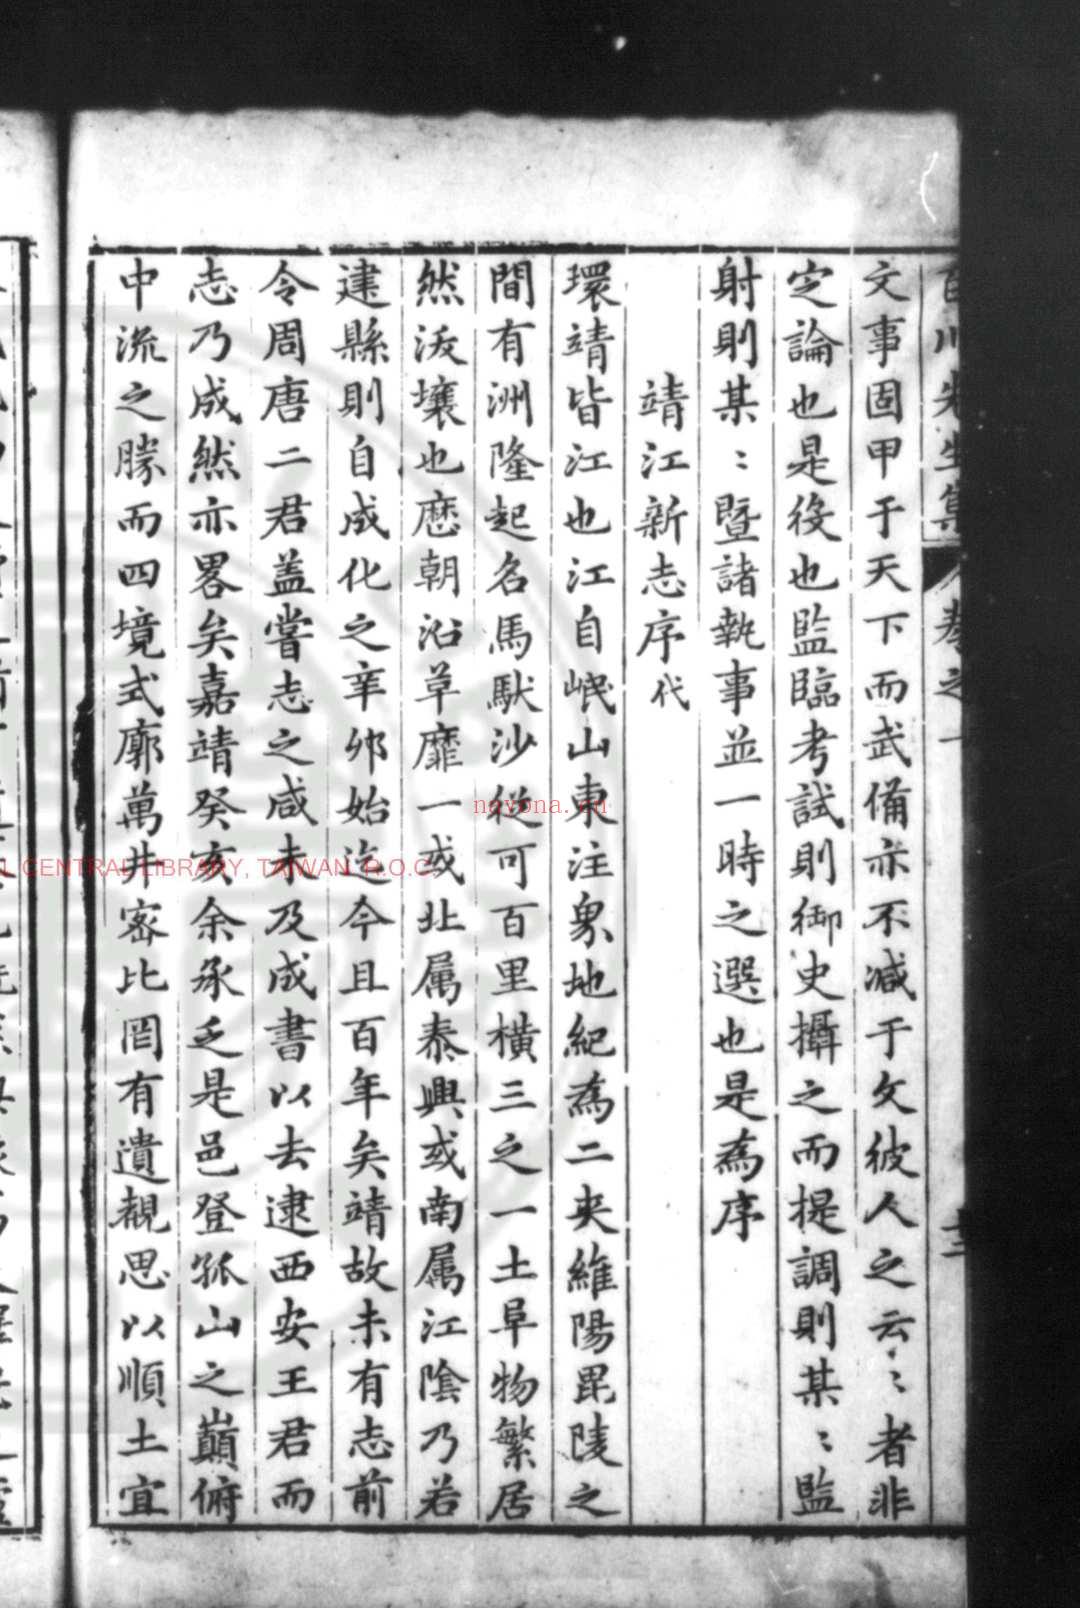 文事固甲于天下而武備亦不減于文彼人之云〻者非
定論也是役也監臨考試則御史攝之而提調則某〻監
射則某〻暨諸執事並一時之選也是為序
靖江新志序代
環靖皆江也江自岷山東注象地紀為二夾維陽毘陵之
間有洲隆起名馬馱沙從可百里橫三之一土阜物繁居
然沃壤也歷朝沿革靡一或北属泰興或南属江陰乃若
建縣則自成化之辛夘始迄今且百年矣靖故未有志前
令周唐二君盖嘗志之咸未及成書以去逮西安王君而
志乃成然亦畧矣嘉靖癸亥余承乏是邑登孤山之巔俯
中流之勝而四境式廓萬井密比罔有遺観思以順土宜
卷之一
navona.cn
CENTRAL LIBRARY, TAIWAN R.O.C.